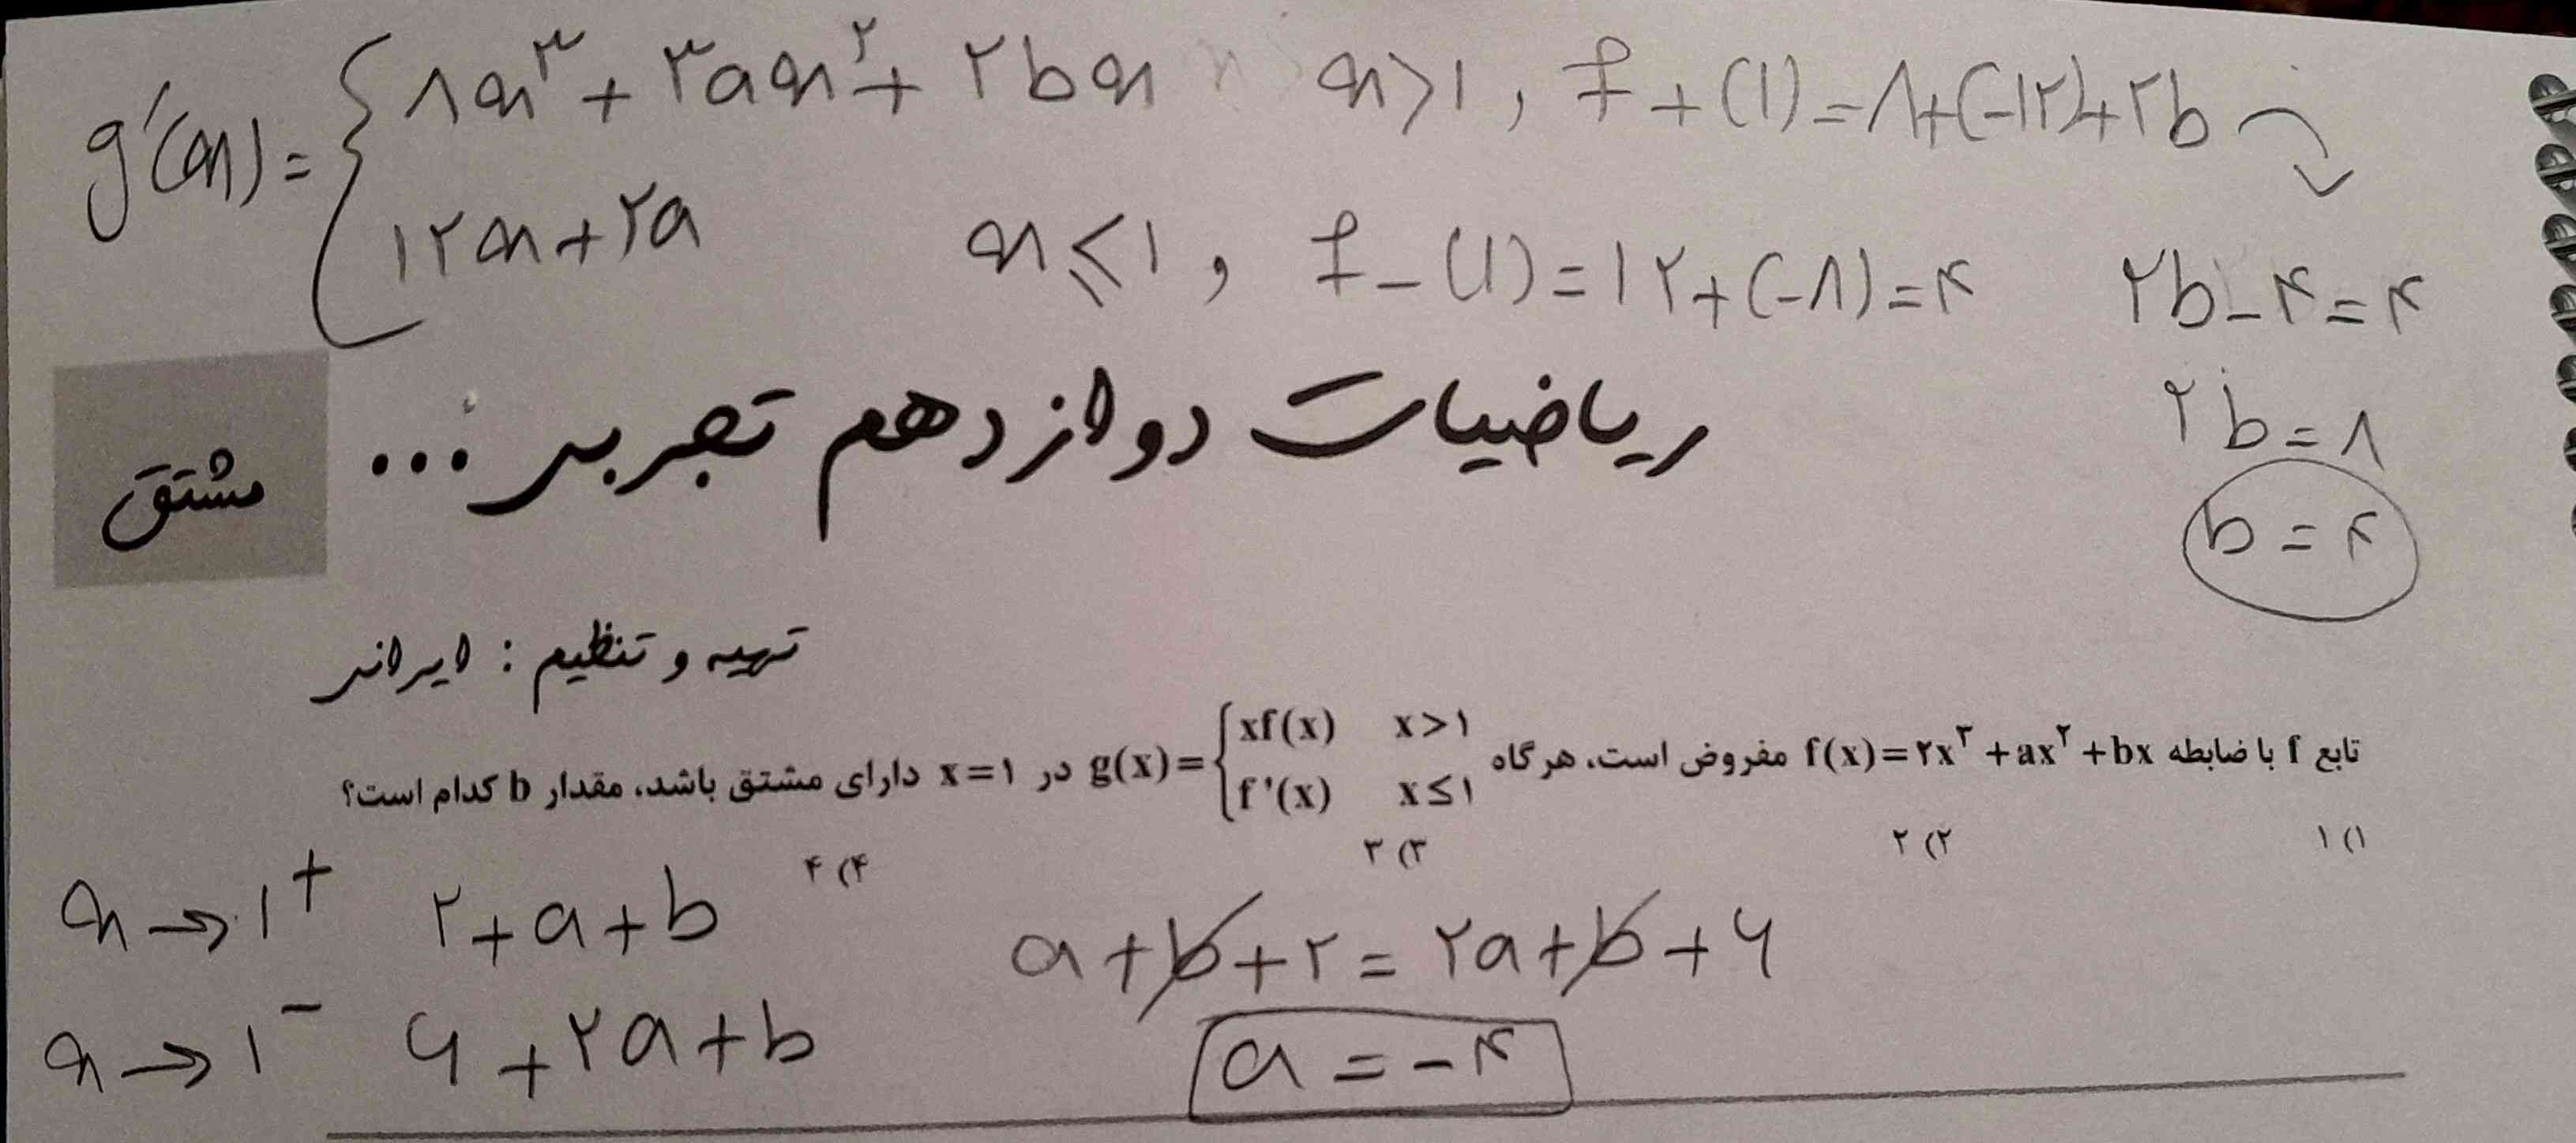 g'(x) = { ۸x^۳ + ۳ax^۲ + ۲bx x>۱ , f+(۱)=۸+(-۱۲)+۲b
۱۲x+۲a x≤۱ , f-(۱)=۱۲+(-۸)=۴ ۲b-۴=۴
۲b=۸
b=۴
ریاضیات دوازدهم تجربی ...
مشتق
تهیه و تنظیم : ایرانی
تابع f با ضابطه f(x)=۲x^۳+ax^۲+bx مفروض است، هرگاه g(x)={ xf(x) x>۱ f'(x) x≤۱ در x=۱ دارای مشتق باشد، مقدار b کدام است؟
۱) ۱ ۲) ۲ ۳) ۳ ۴) ۴
x→۱^+ ۲+a+b a+b+۲=۲a+b+۶
x→۱^- ۶+۲a+b a=-۴